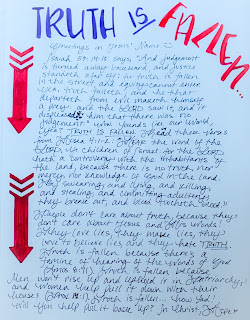 TRUTH IS
FALLEN...
Greetings in Jesus' Name
Isaiah 59:14-15 says, "And judgement
is turned away backward, and justice
standeth afar off: for truth is fallen
in the street, and equity cannot enter.
Yea, truth faileth; and he that
departeth from evil maketh himself
a prey: and the LORD saw it, and it
displeased him that there was no
judgement."
TRUTH IS FALLEN. Read these verses
from Hosea 4:1-2. "Hear the word of the
LORD, ye children of Israel: for the LORD
hath a controversy with the inhabitants of
the land, because there is no truth, nor
mercy, nor knowledge of God in the land.
By swearing, and lying, and killing,
and stealing, and committing adultery,
they break out, and blood toucheth blood."
People don't care about truth, because they
don't care about Jesus and His words.
They love lies, they make lies, they
love to believe lies, and they hate TRUTH.
Truth is fallen because there's a
famine of hearing of the words of God
(Amos 8:11). Truth is fallen because
Men won't rise up and uphold it in
and women help pull it down with their
Truth is fallen... how sad.
Will you help pull it back up? In Christ,